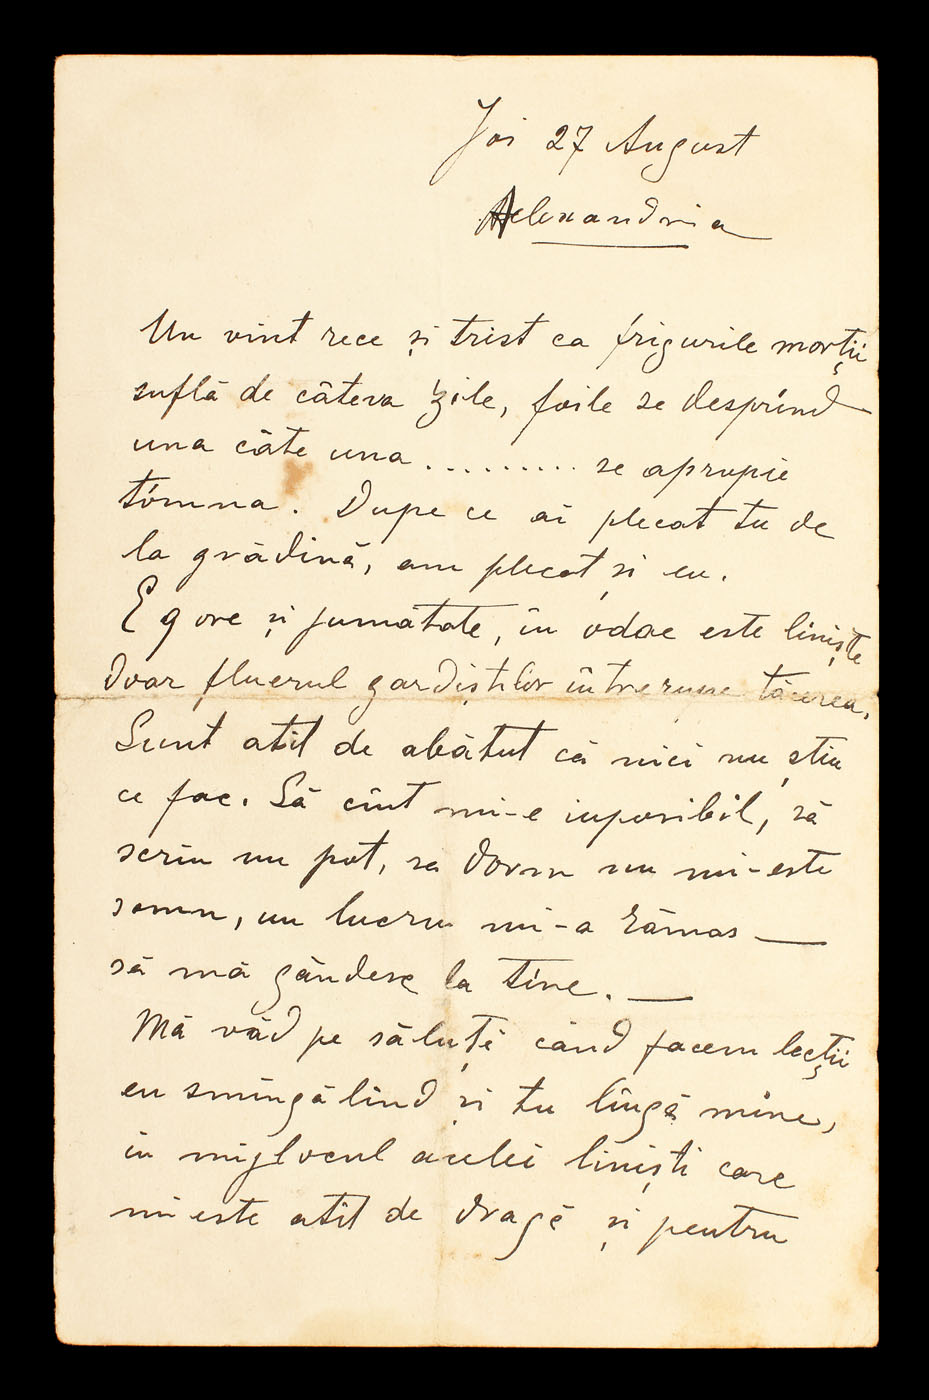 Joi 27 August
Alexandria
Un vint rece și trist ca frigurile morții
suflă de câteva zile, foile se desprind
una câte una .......... se apropie
tómna. Dupe ce ai plecat tu de
la grădină, am plecat și eu.
E 9 ore și jumătate, în odae este liniște
doar fluerul gardiștilor întrerupe tăcerea.
Sunt atît de abătut că nici nu știu
ce fac. Să cînt mi-e imposibil, să
scriu nu pot, sa dorm nu mi-este
somn, un lucru mi-a rămas —
să mă gândesc la tine. —
Mă văd pe săluță când facem lecții
eu smîngălind și tu lîngă mine,
in mijlocul acelei liniști care
mi este atît de dragă și pentru